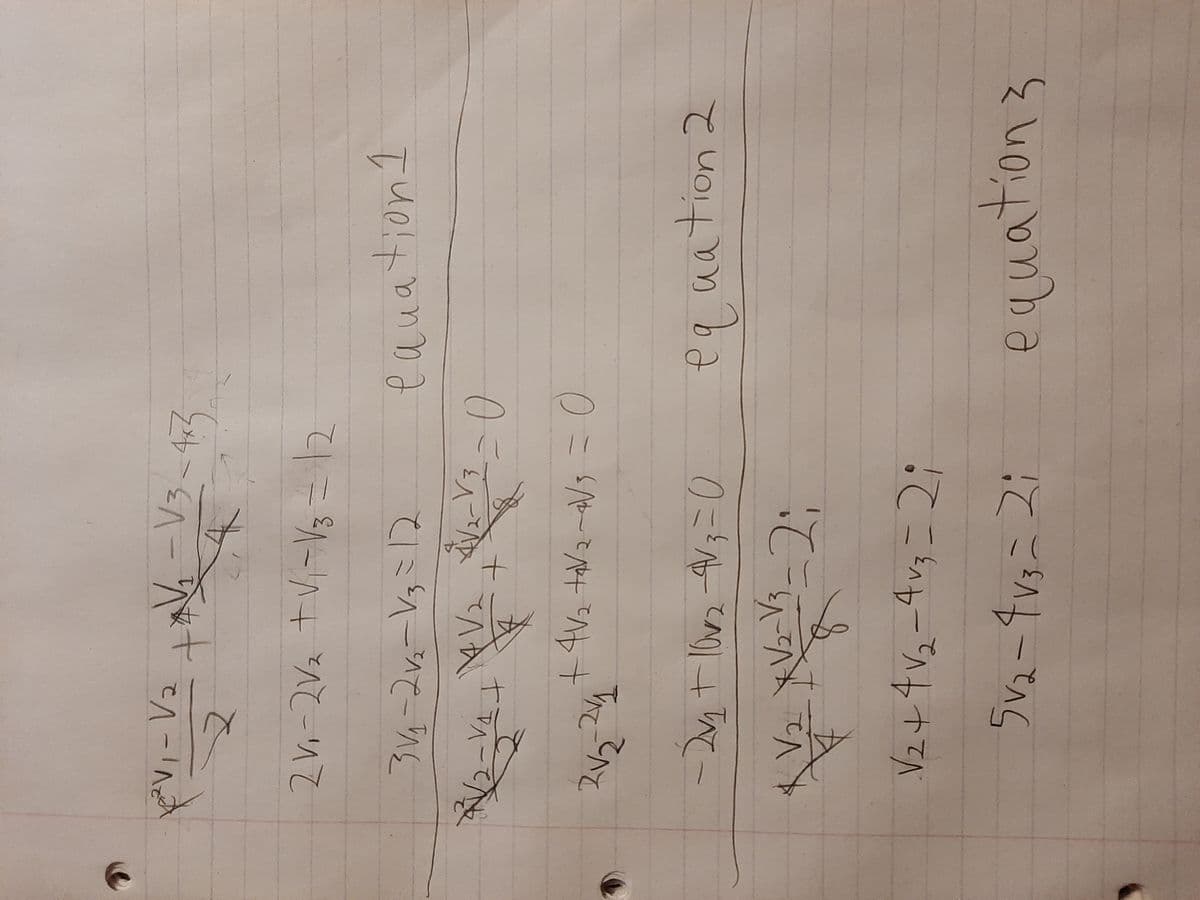 4²V₁-V₂/2 + 4V₁-V₃/4 - 4×3
2V₁-2V₂ + V₁-V₃ = 12
3V₁-2V₂-V₃=12 equation 1
4²V₂-V₁/2 + 4V₂/4 + 4V₂-V₃/8 = 0
2V₂-2V₁ + 4V₂ + 4V₂-4V₃ = 0
-2V₁ + 10V₂ - 4V₃ = 0 equation 2
4 V₂/4 + 4V₂-V₃/8 = 2i
V₂ + 4V₂ - 4V₃ = 2i
5V₂ - 4V₃ = 2i equation 3